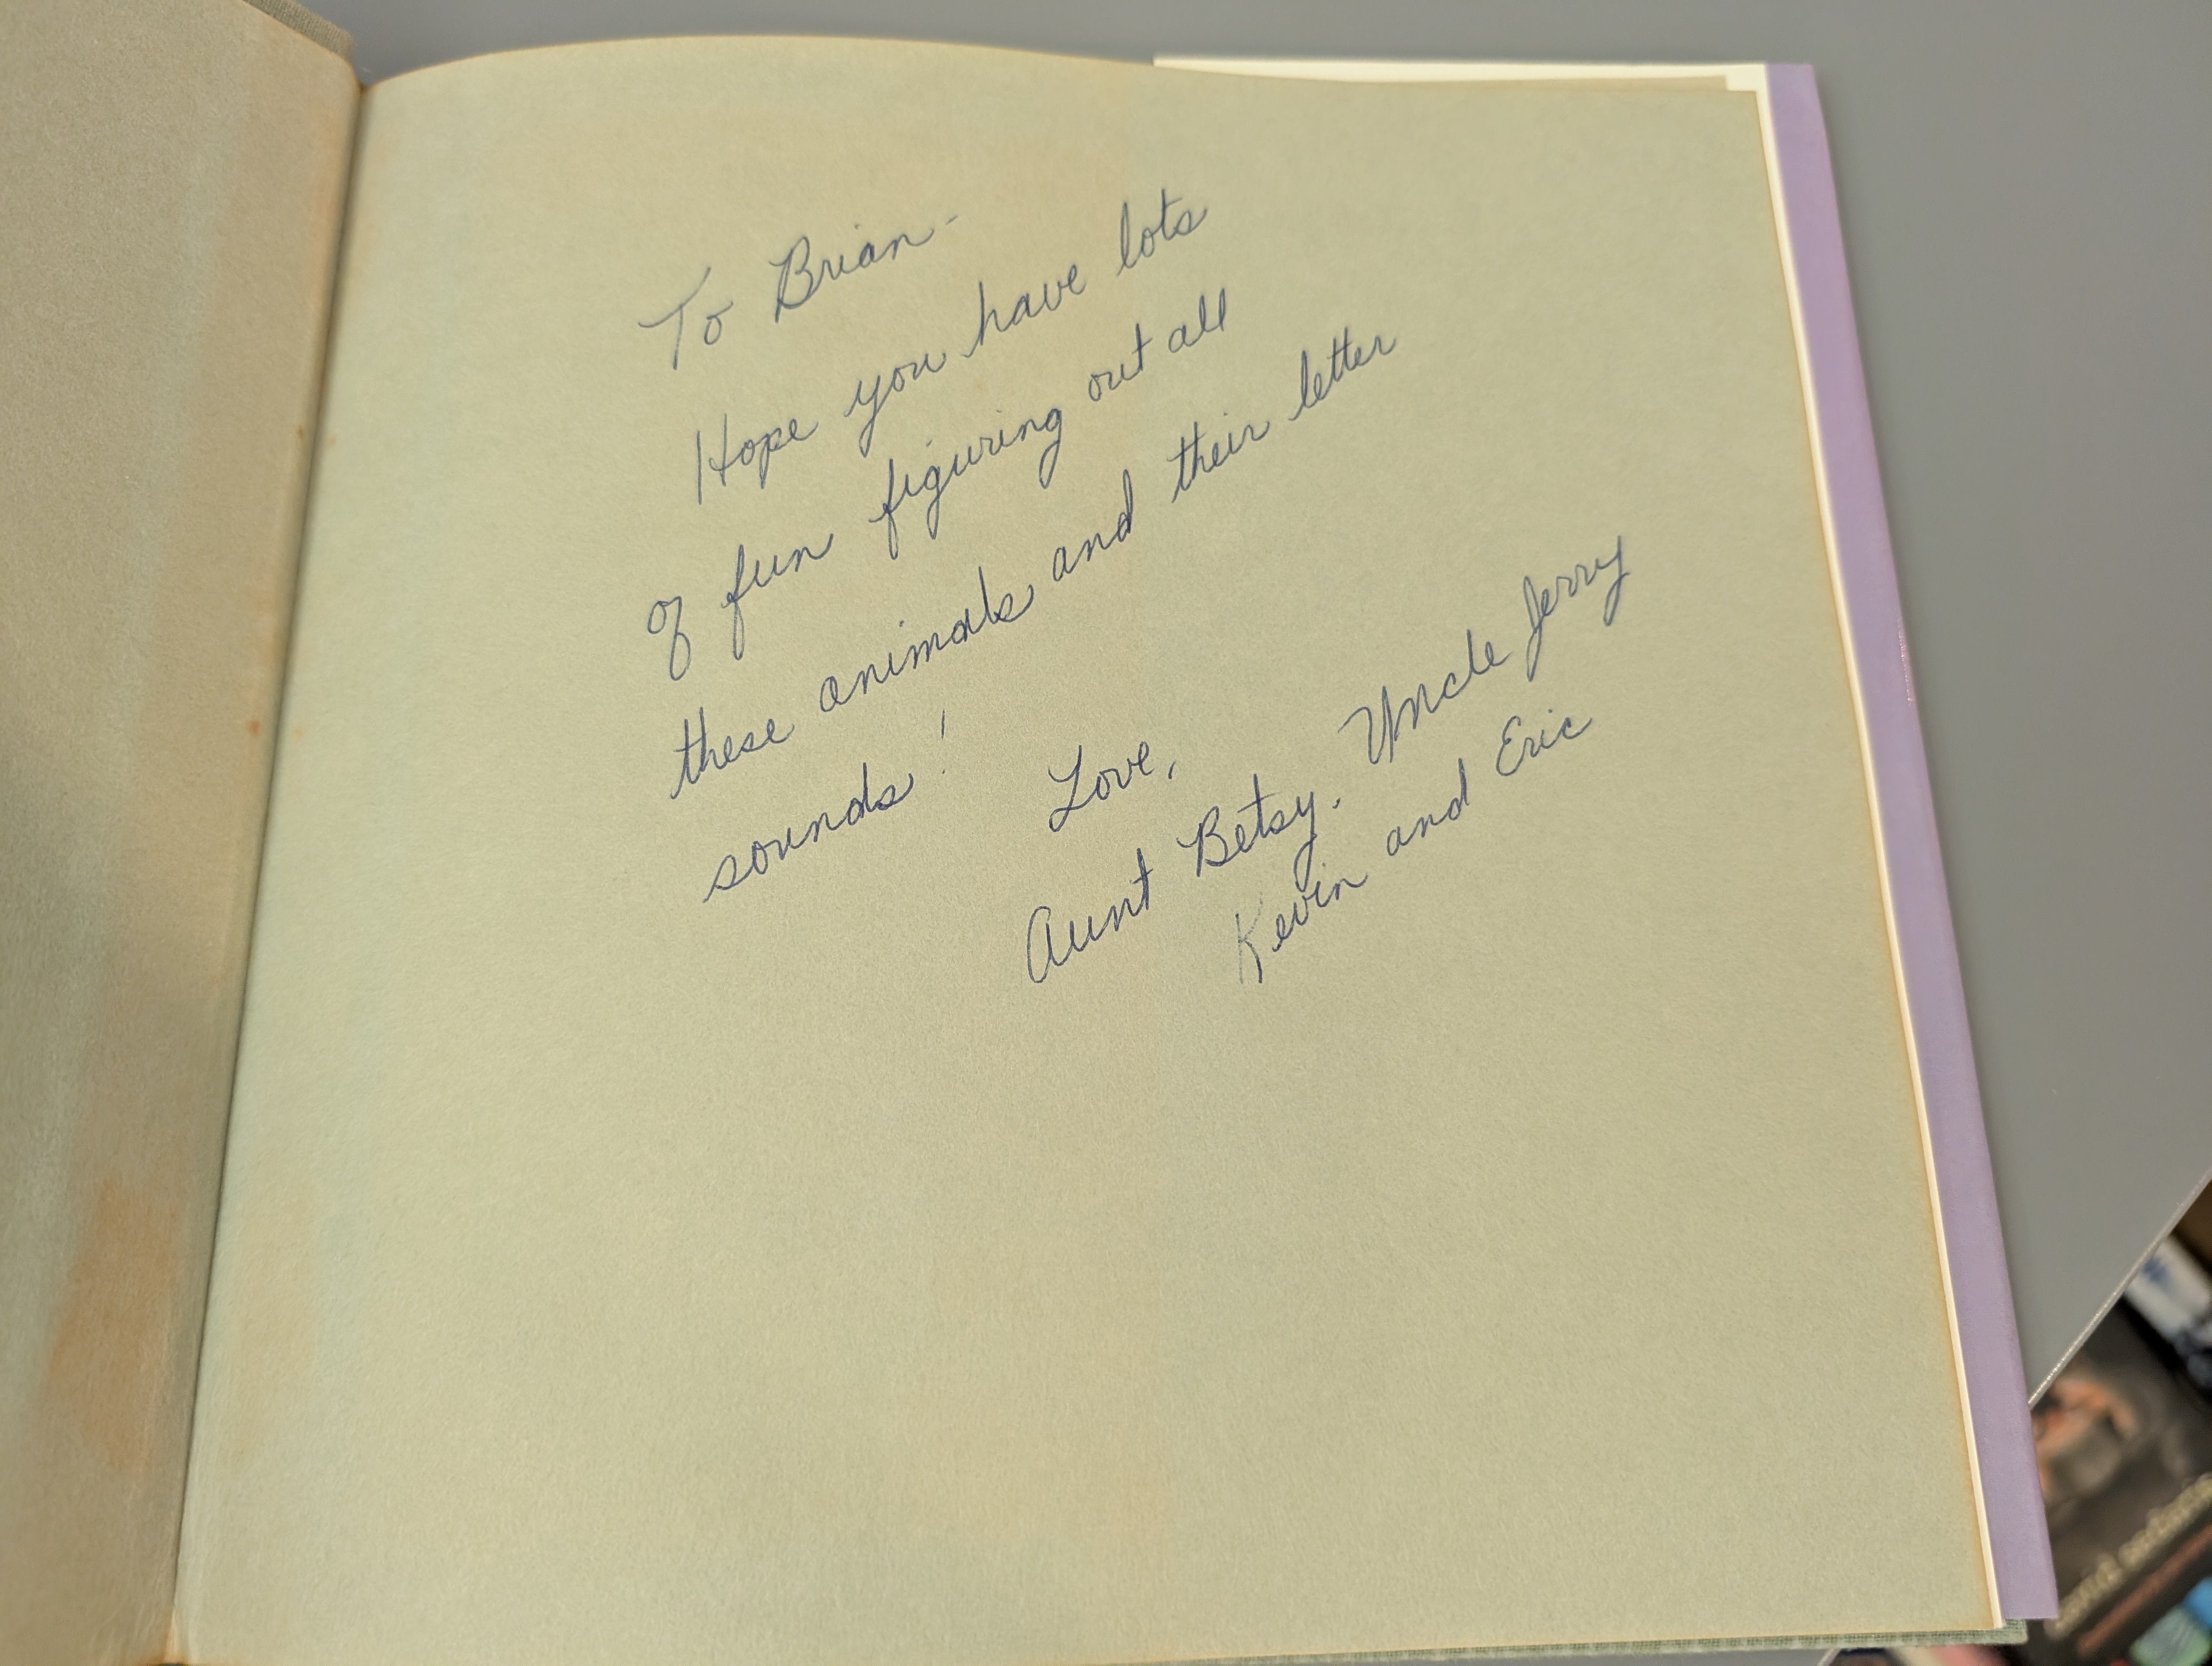 To Brian-
Hope you have lots
of fun figuring out all
these animals and their letter
sounds!
Love,
Aunt Betsy, Uncle Jerry
Kevin and Eric